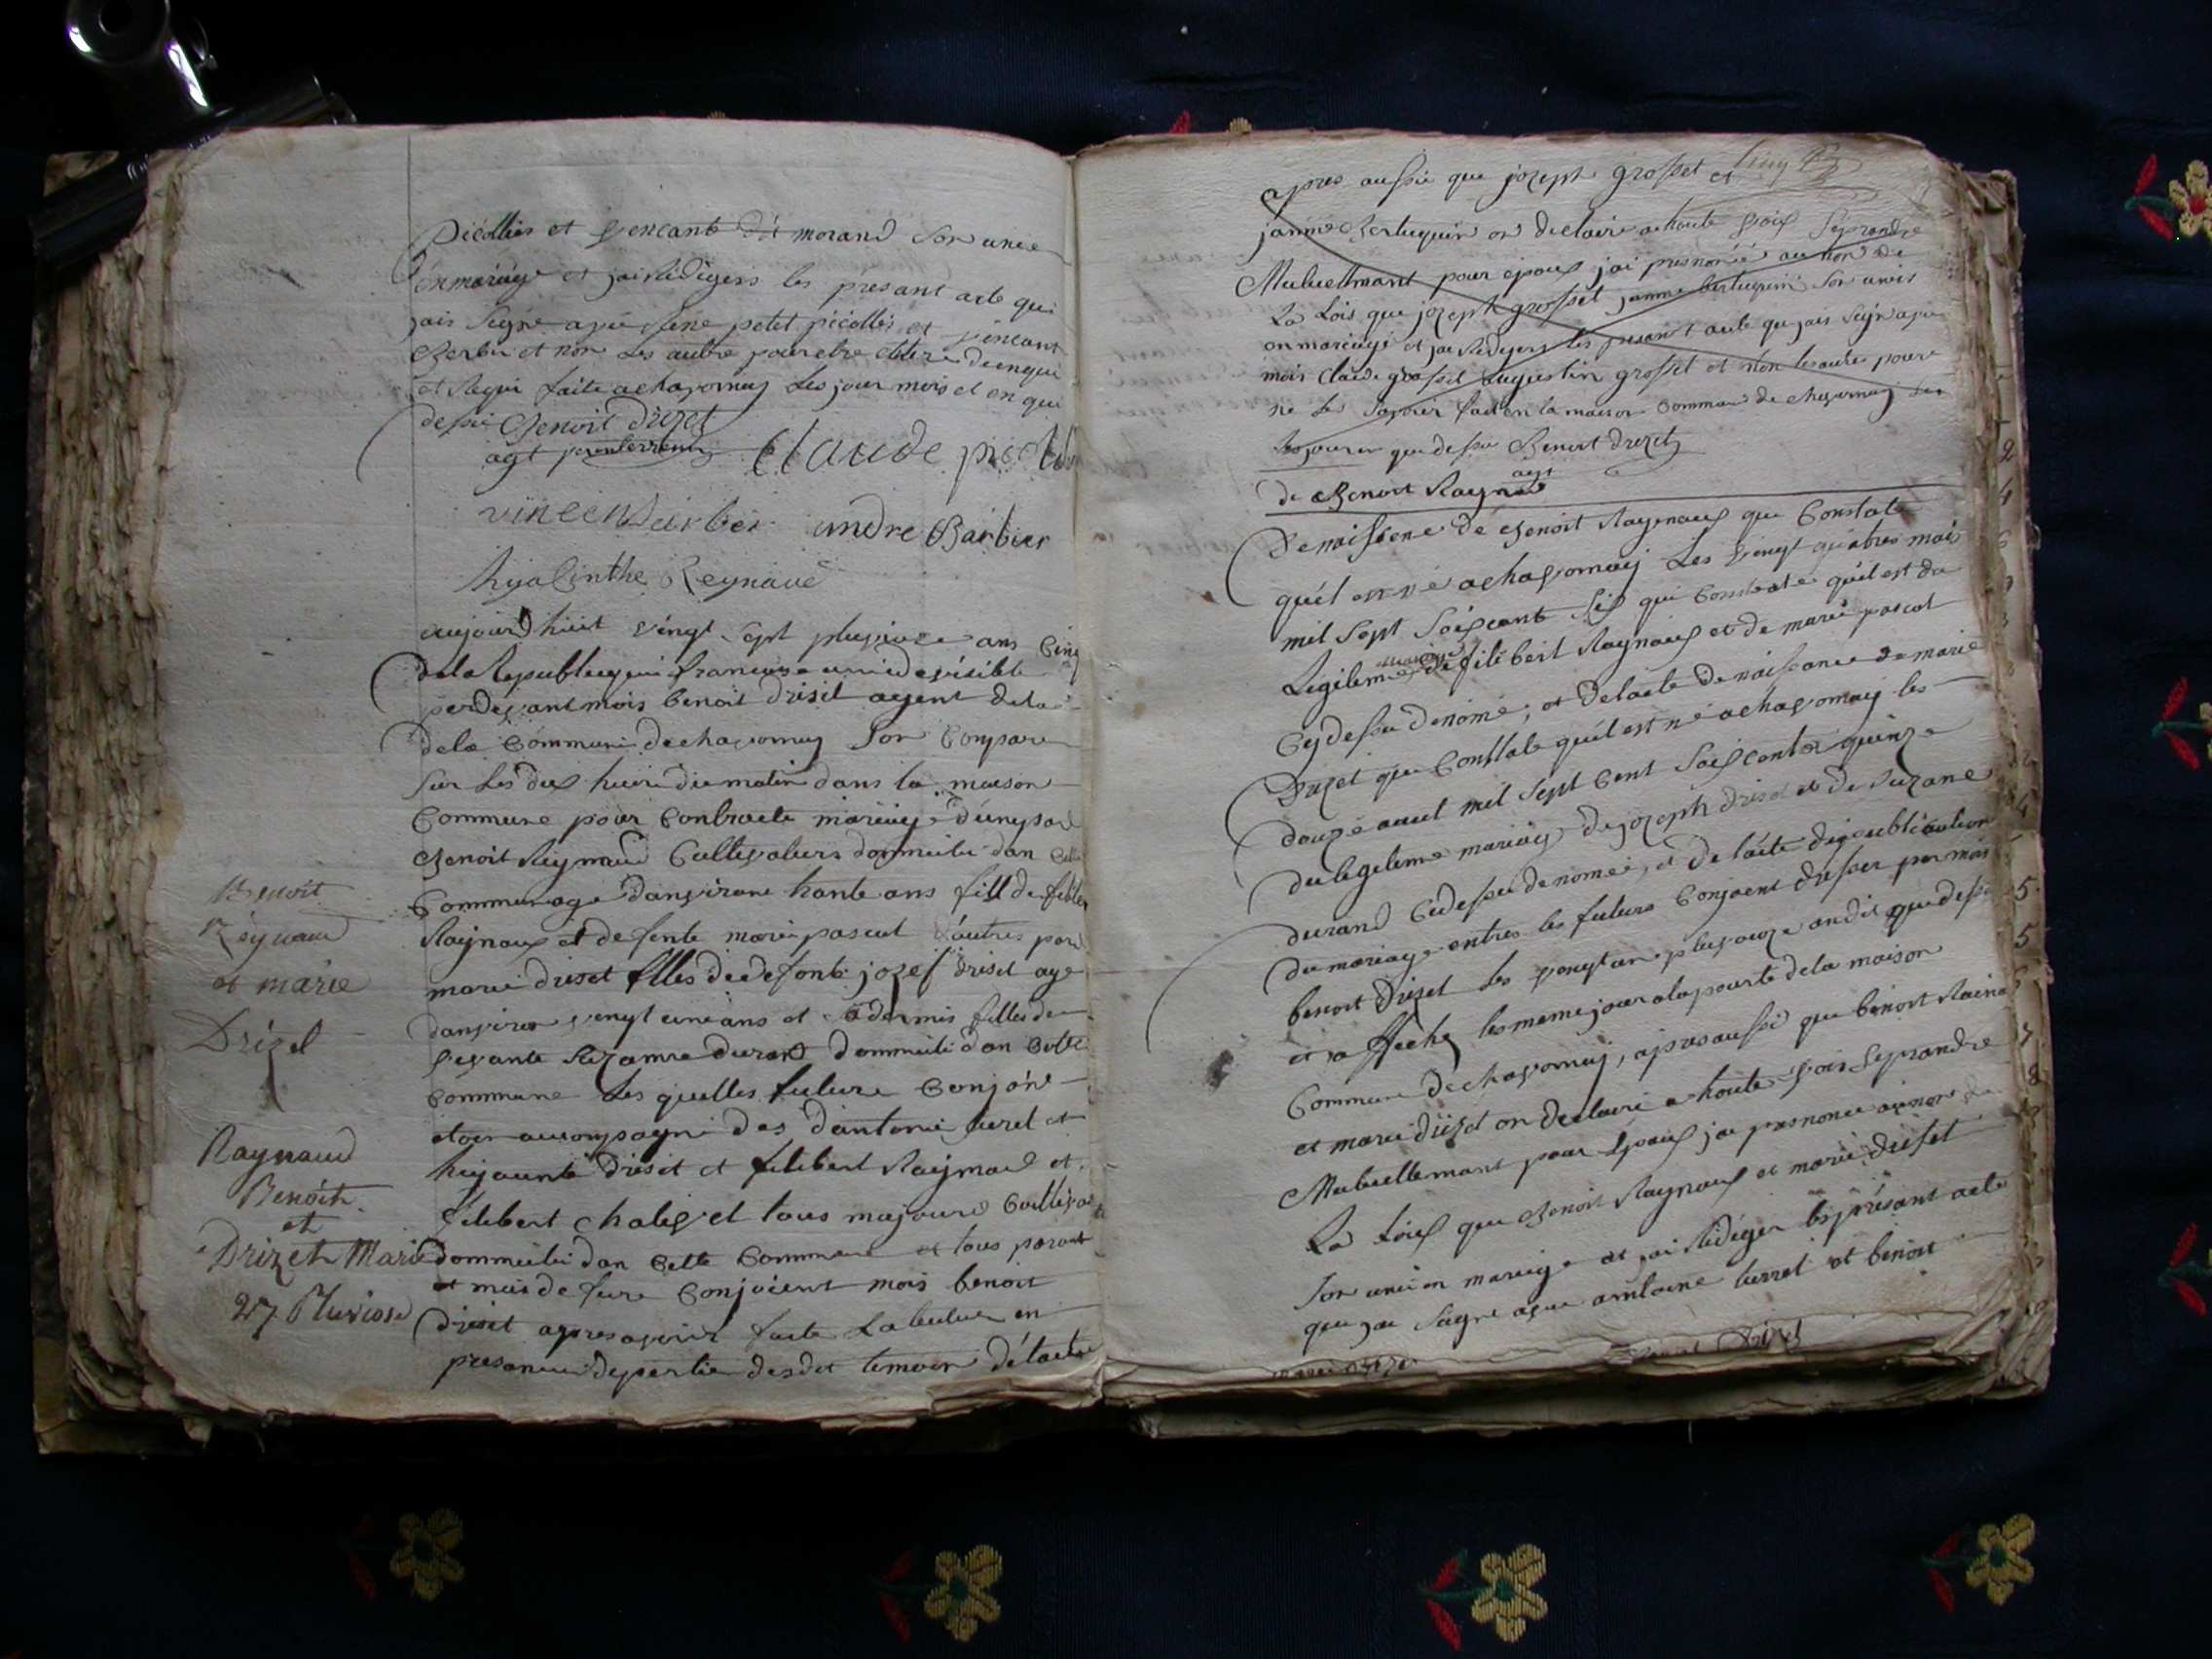 picollier et vencant dit morand son unie
en mariage et jai rédigers les presant acte qui
jais signe apui Séné petit picollis et vencant
Berbier et non les autre pour etre
et requi faite a chavornay les jour mois et en que
dessu Benoit drizet
agt
Claude picol
vincen barbier andre Barbier
hyacinthe Reynaud
aujourdhuit vingt sept pluviose ans cinq
de la Republicque francoise unie devisible
perdevant mois benoit drisit agent dela
dela Commune de chavornay son Compare
sur les dix huire du matin dans la maison
Commune pour Contracte mariage d'unepar
Benoit Reynaud Cultivateurs dommicili dan cette
Commune age danvirone trante ans fill de filiber
Raynaux et de fente marie pascal l'autres par
marie driset filles de defont jozef driset age
danviron vengt une ans et demis filles de
vevante Suzanne durand dommicili dan cette
commune les quelles future Conjoins
etoer accompagne des d'antonie furet et
hijaunte driset et filibert Raynaud et
filibert chalevet tous majeurs Cultivat
dommicili dan cette Commune et tous parant
et mis de fure Conjoient mois benoit
drisit apres avoir faite la lecture en
presance de pertie des dit temoin de l'acte
Benoit
Reynaud
et marie
Drizel
Raynaud
Benoit
et
Drizet Marie
27 Pluviose
apres aussi que jozeph grosset et
janne Bertuquin on declaire a haute voix se prandre
Mutuellmant pour epoux jai prononcé au non de
la Lois que jozeph grosset janne bertuquin son unis
en mariage et jai redigers les presant acte que jais signe apui
mois Claude grosset augustin grosset et non les autre pour
ne les savoir fait en la maison commune de chavornay les
les jour en que dessu Benoit drizet
agt
de Benoit Raynau
de naissance de Benoit Raynaux que Constate
qu'el est né a chavornay Les vengt quatres mais
mil sept soiscante six qui Constate qu'el est du
Legitime mariage de filibert Raynaux et de marie pascal
Cy dessu denomé, et de lacte de naissance de marie
Drizet que Constate qu'el est né a chavornay les
douze auril mil sept Cent soiscante quinze
du legitime mariage de jozeph driset et de Suzane
durand Cidessu denomé, et de l'acte de publication
du mariage entres les futurs Conjoent dresser par mois
benoit drizet les vengt un pluvioze an dit que dessu
et affiché les meme jour a la pourte dela maison
Commune de chavornay, apres aussi que benoit Raina
et marie drizet on declaire a haute voix se prandre
Mutuellemant pour epoux jai prononcé au non de
La Loix que Benoit Raynaux et marie driset
son uni en mariage et jai rédiger les présant acte
que jai signe apui antoine furret et benoit